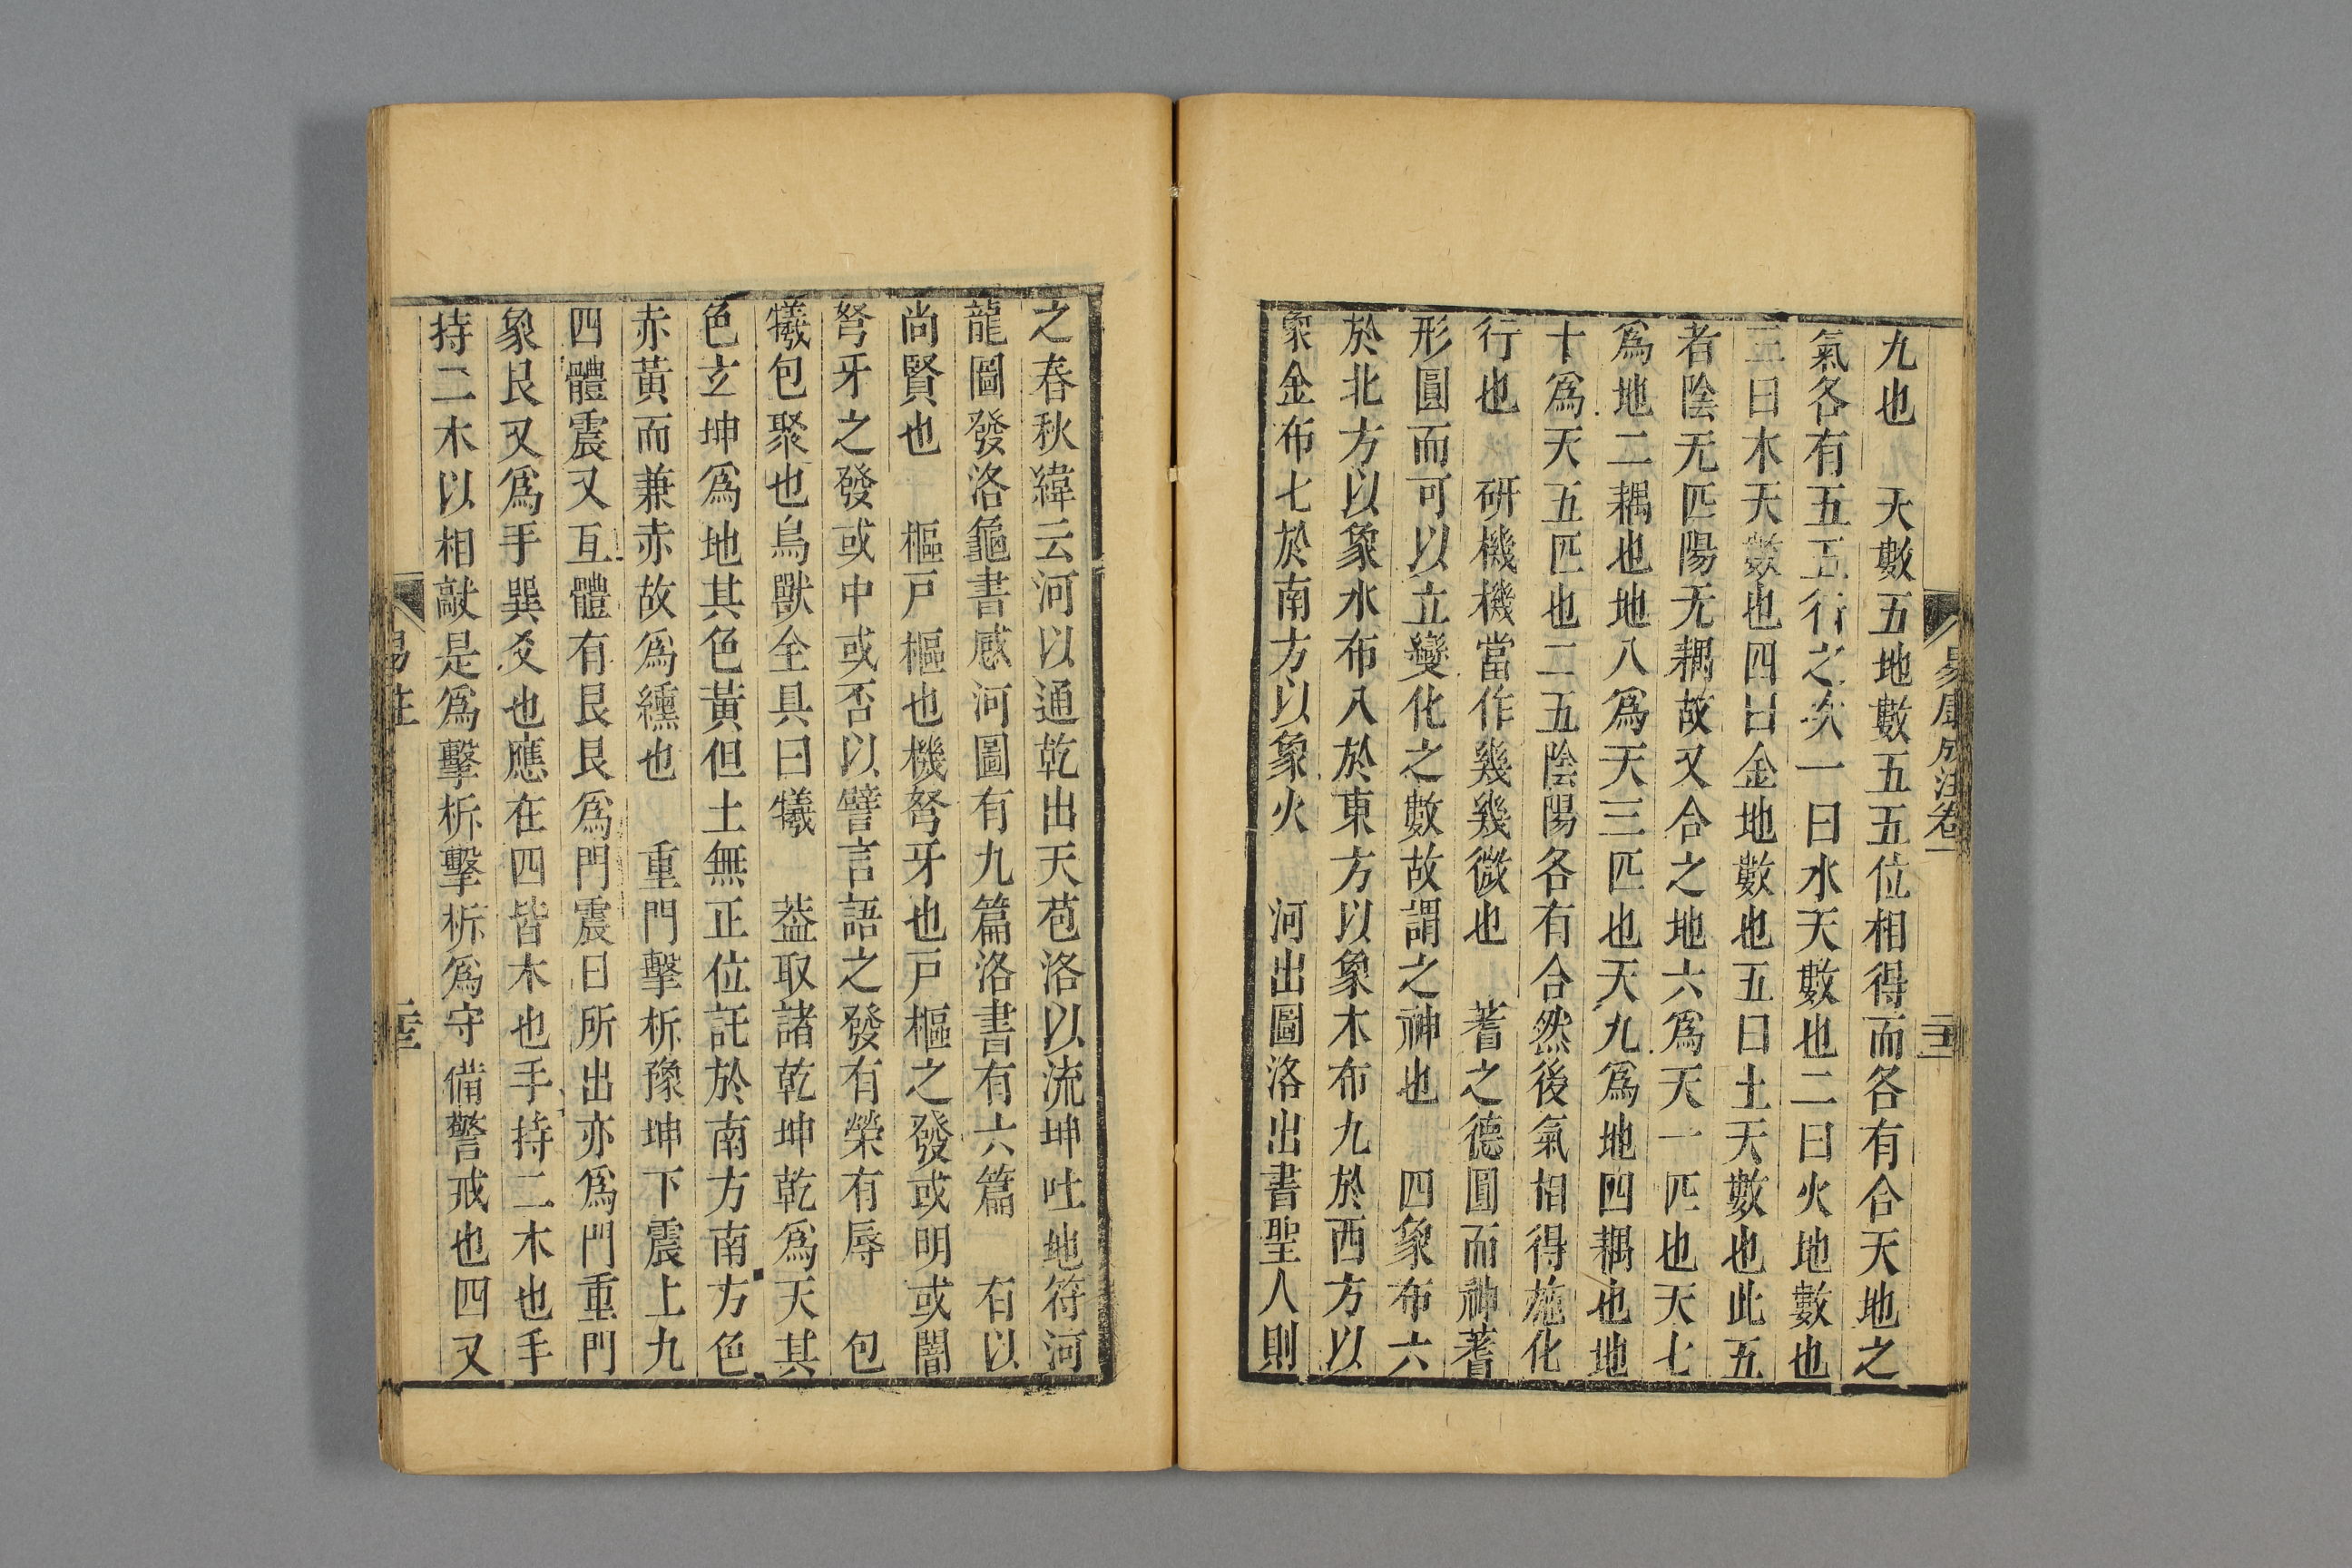 九也　天數五地數五五位相得而各有合天地之
氣各有五五行之次一曰水天數也二曰火地數也
三曰木天數也四曰金地數也五曰土天數也此五
者陰无匹陽无耦故又合之地六爲天一匹也天七
爲地二耦也地八爲天三匹也天九爲地四耦也地
十爲天五匹也二五陰陽各有合然後氣相得施化
行也　研機機當作幾幾微也　蓍之德圓而神蓍
形圓而可以立變化之數故謂之神也　四象布六
於北方以象水布八於東方以象木布九於西方以
象金布七於南方以象火　河出圖洛出書聖人則
易康成注卷
之春秋緯云河以通乾出天苞洛以流坤吐地符河
龍圖發洛龜書感河圖有九篇洛書有六篇　有以
尚賢也　樞戶樞也機弩牙也戶樞之發或明或闇
弩牙之發或中或否以譬言語之發有榮有辱　包
犧包聚也鳥獸全具曰犧　葢取諸乾坤乾爲天其
色玄坤爲地其色黃但土無正位託於南方南方色
赤黃而兼赤故爲纁也　重門擊柝豫坤下震上九
四體震又互體有艮艮爲門震日所出亦爲門重門
象艮又爲手巽爻也應在四皆木也手持二木也手
持二木以相敲是爲擊柝擊柝爲守備警戒也四又
易注